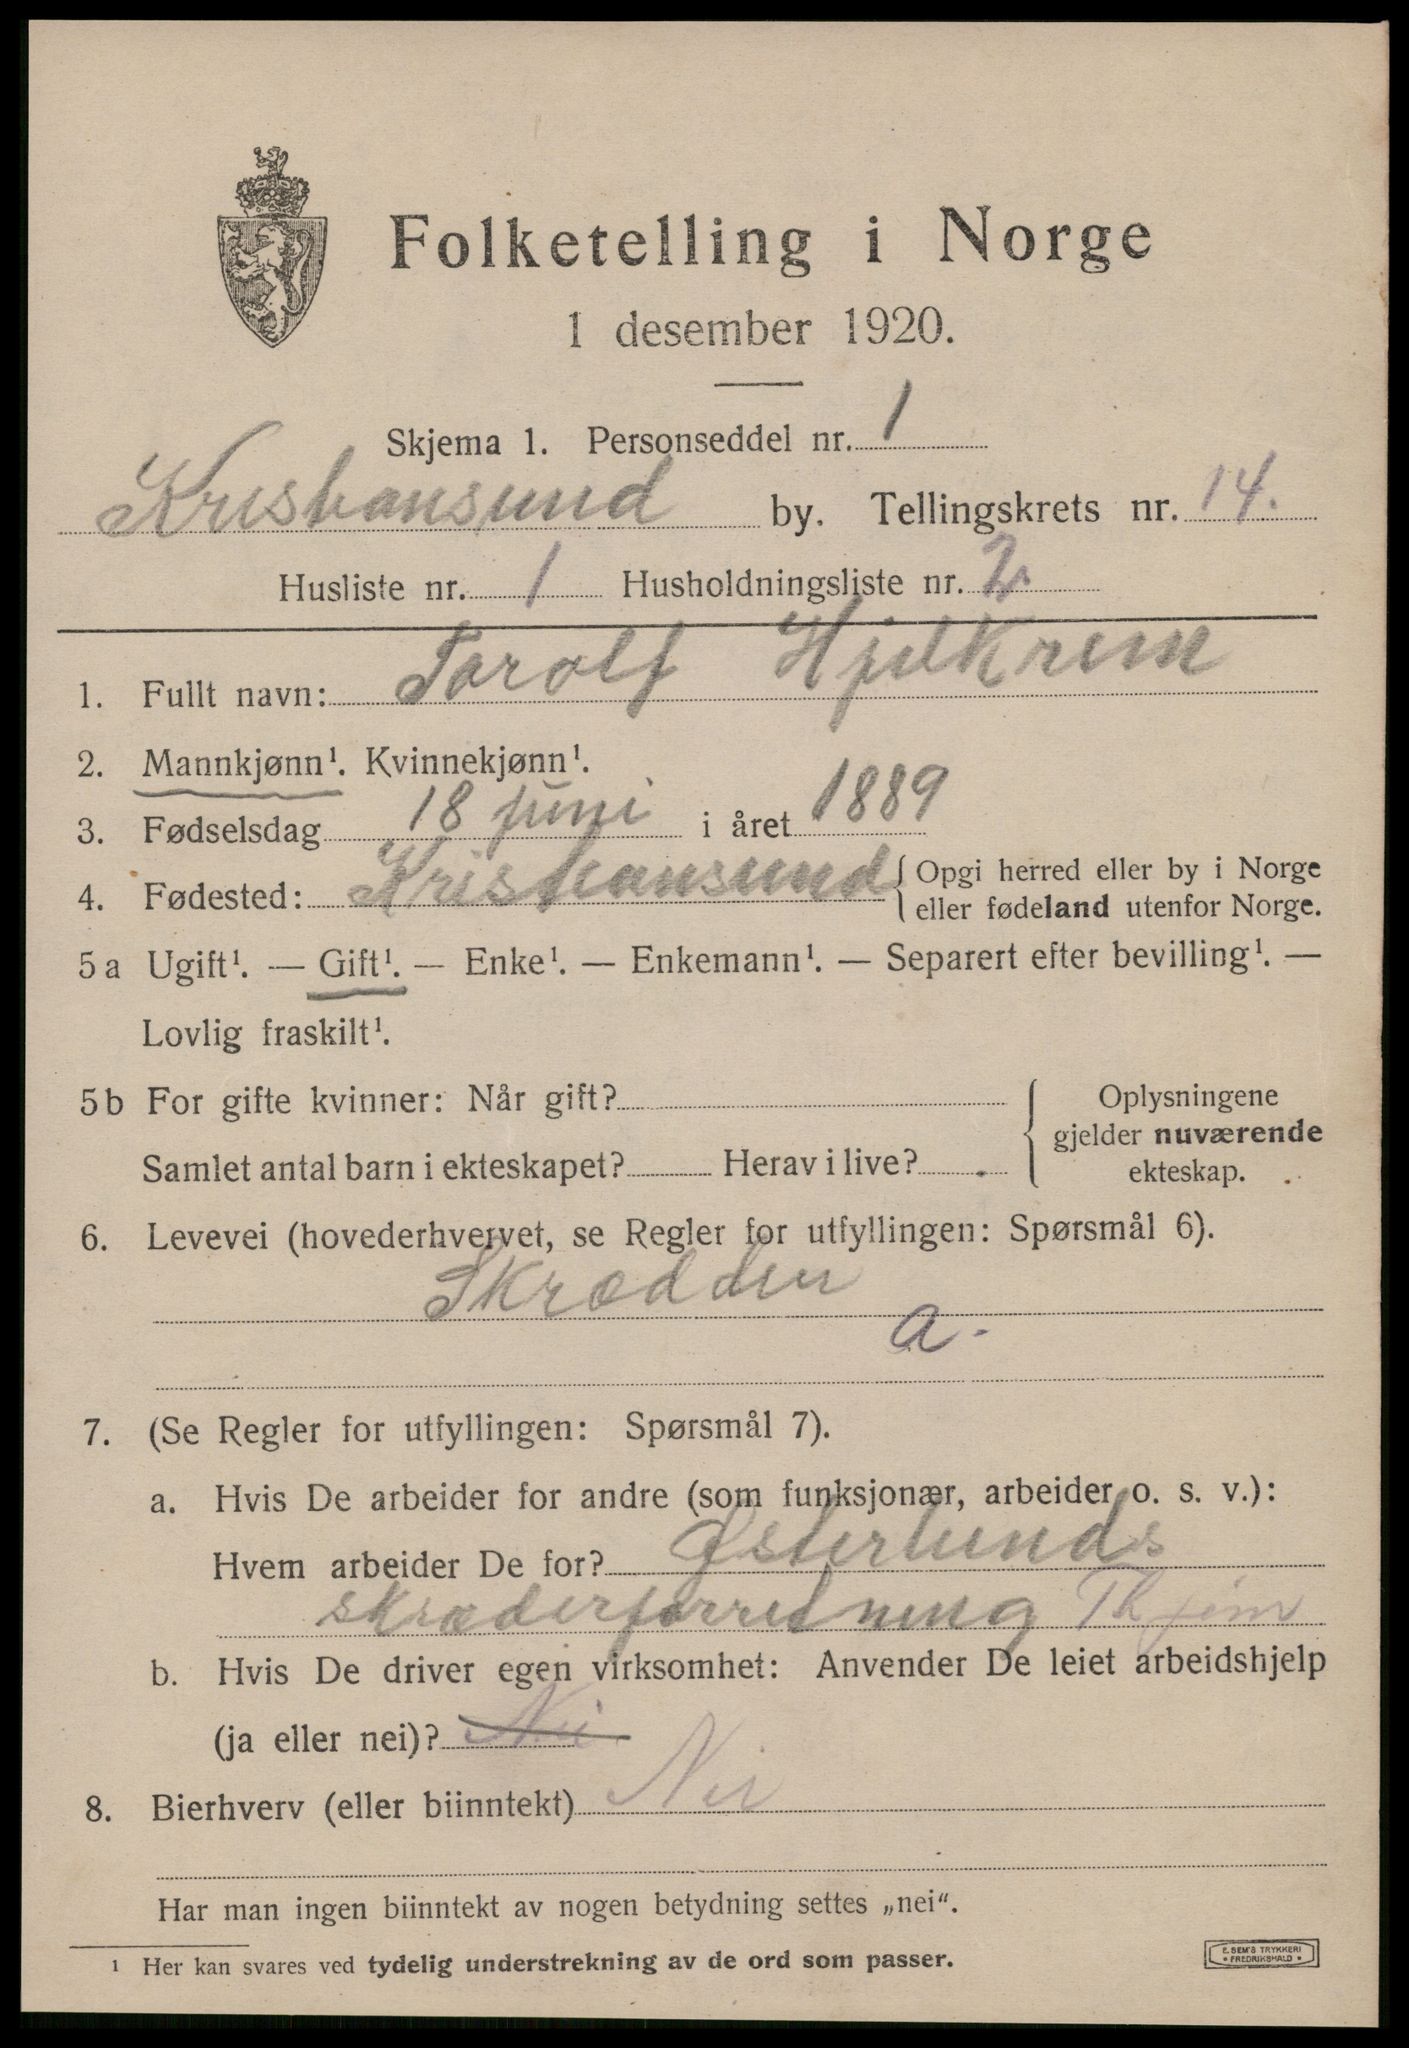 Folketelling i Norge
1 desember 1920.
Skjema 1. Personseddel nr. 1
Kristiansund by. Tellingskrets nr. 14.
Husliste nr. 1 Husholdningsliste nr. 2
1. Fullt navn: Torolf Hjelkrem
2. Mannkjønn¹. Kvinnekjønn¹.
3. Fødselsdag 18 juni i året 1889
4. Fødested: Kristiansund { Opgi herred eller by i Norge
eller fødeland utenfor Norge.
5 a Ugift¹. — Gift¹. — Enke¹. — Enkemann¹. — Separert efter bevilling¹. —
Lovlig fraskilt¹.
5 b For gifte kvinner: Når gift?
Samlet antal barn i ekteskapet? Herav i live?
Oplysningene
gjelder nuværende
ekteskap.
6. Levevei (hovederhvervet, se Regler for utfyllingen: Spørsmål 6).
Skrædder
a.
7. (Se Regler for utfyllingen: Spørsmål 7).
a. Hvis De arbeider for andre (som funksjonær, arbeider o. s. v.):
Hvem arbeider De for? Østerlunds
skræderforredning
b. Hvis De driver egen virksomhet: Anvender De leiet arbeidshjelp
(ja eller nei)? Nei
8. Bierhverv (eller biinntekt) Nei
Har man ingen biinntekt av nogen betydning settes „nei“.
¹ Her kan svares ved tydelig understrekning av de ord som passer.
E. SEM'S TRYKKERI
• FREDRIKSHALD •